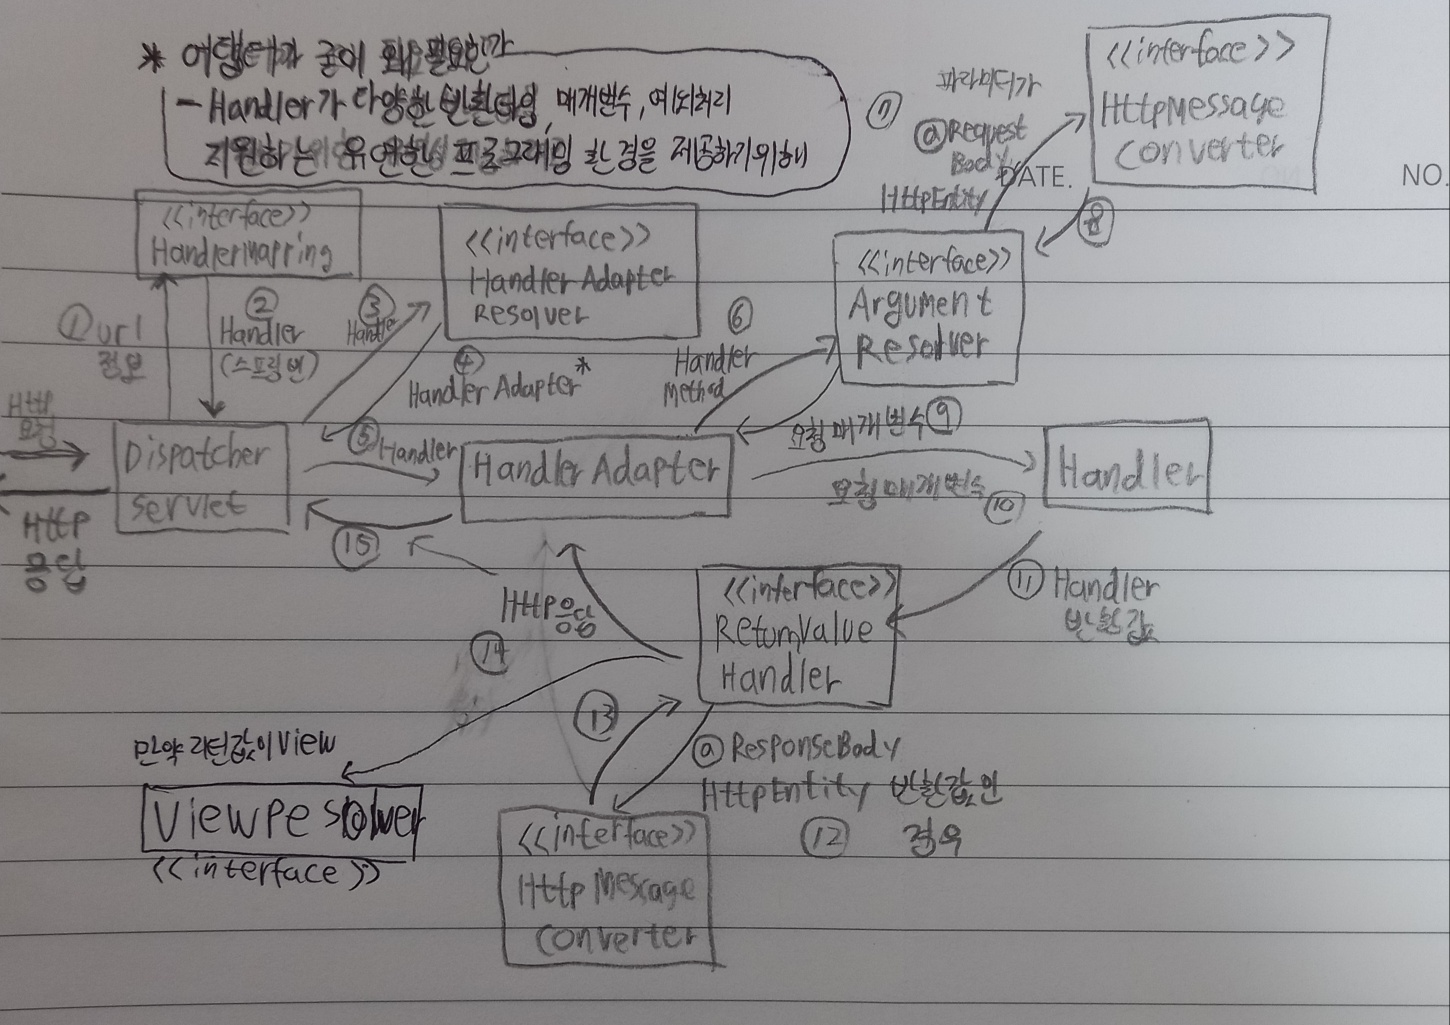 * 어댑터가 굳이 왜 필요한가
- Handler가 다양한 반환타입, 매개변수, 예외처리
지원하는 유연한 프로그래밍 환경을 제공하기위해
DATE.
NO.
<<interface>>
HttpMessage
Converter
⑦ 파라미터가
@Request
Body
HttpEntity
⑧
<<interface>>
HandlerMapping
<<interface>>
Handler Adapter
Resolver
<<interface>>
Argument
Resolver
① url
정보
②
Handler
(스프링 빈)
③
Handler
④
Handler Adapter*
⑥
Handler
Method
Http
요청
Dispatcher
Servlet
⑤ Handler
Handler Adapter
요청 매개변수 ⑨
요청 매개변수
⑩
Handler
Http
응답
⑮
HTTP 응답
⑭
<<interface>>
ReturnValue
Handler
⑪ Handler
반환값
⑬
만약 리턴값이 View
ViewResolver
<<interface>>
@ResponseBody
HttpEntity 반환값인
⑫ 경우
<<interface>>
Http Message
Converter